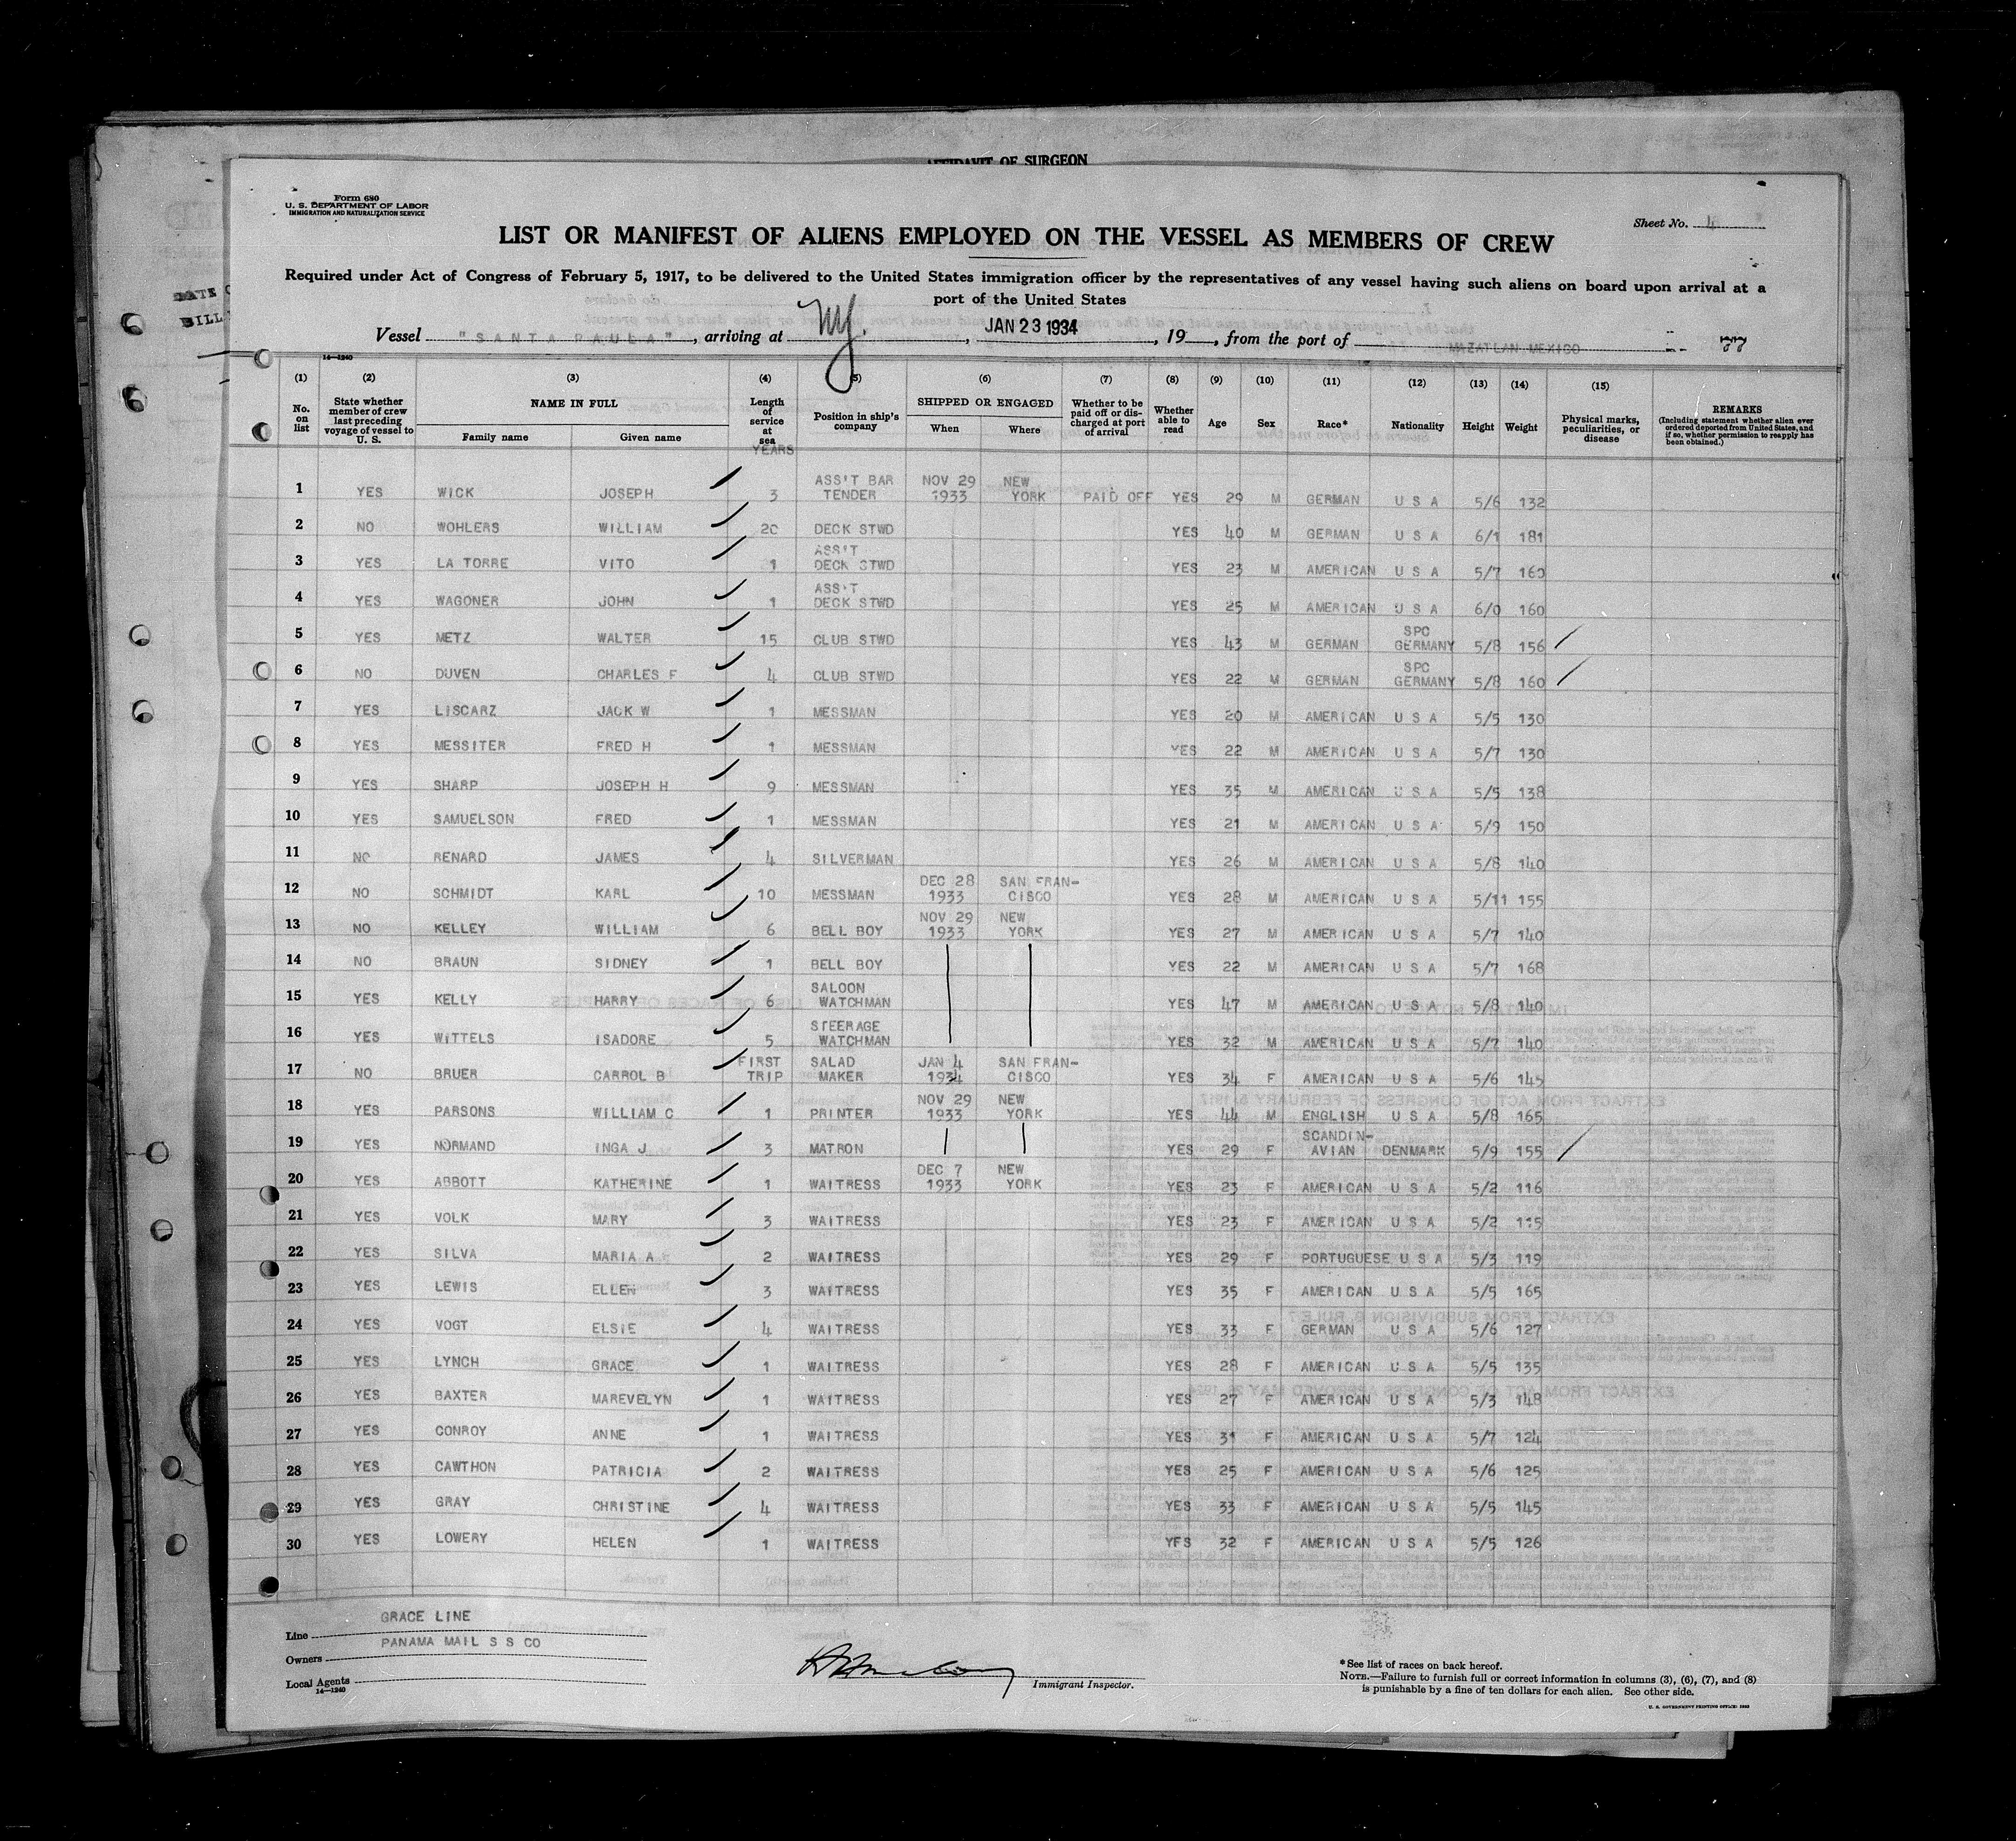 AFFIDAVIT OF SURGEON
Form 680
U. S. DEPARTMENT OF LABOR
IMMIGRATION AND NATURALIZATION SERVICE
Sheet No. 4
LIST OR MANIFEST OF ALIENS EMPLOYED ON THE VESSEL AS MEMBERS OF CREW
Required under Act of Congress of February 5, 1917, to be delivered to the United States immigration officer by the representatives of any vessel having such aliens on board upon arrival at a
port of the United States
Vessel "SANTA PAULA", arriving at NY., JAN 23 1934, 19 , from the port of MAZATLAN MEXICO
14—1240
(1) (2) (3) (4) (5) (6) (7) (8) (9) (10) (11) (12) (13) (14) (15)
No. on list State whether member of crew last preceding voyage of vessel to U. S. NAME IN FULL Family name Given name Length of service at sea YEARS Position in ship's company SHIPPED OR ENGAGED When Where Whether to be paid off or discharged at port of arrival Whether able to read Age Sex Race* Nationality Height Weight Physical marks, peculiarities, or disease REMARKS (Including statement whether alien ever ordered deported from United States, and if so, whether permission to reapply has been obtained.)
1 YES WICK JOSEPH 3 ASS'T BAR TENDER NOV 29 1933 NEW YORK PAID OFF YES 29 M GERMAN U S A 5/6 132
2 NO WOHLERS WILLIAM 20 DECK STWD YES 40 M GERMAN U S A 6/1 181
3 YES LA TORRE VITO 1 ASS'T DECK STWD YES 23 M AMERICAN U S A 5/7 160
4 YES WAGONER JOHN 1 ASS'T DECK STWD YES 25 M AMERICAN U S A 6/0 160
5 YES METZ WALTER 15 CLUB STWD YES 43 M GERMAN SPC GERMANY 5/8 156
6 NO DUVEN CHARLES F 4 CLUB STWD YES 22 M GERMAN SPC GERMANY 5/8 160
7 YES LISCARZ JACK W 1 MESSMAN YES 20 M AMERICAN U S A 5/5 130
8 YES MESSITER FRED H 1 MESSMAN YES 22 M AMERICAN U S A 5/7 130
9 YES SHARP JOSEPH H 9 MESSMAN YES 35 M AMERICAN U S A 5/5 138
10 YES SAMUELSON FRED 1 MESSMAN YES 21 M AMERICAN U S A 5/9 150
11 NO RENARD JAMES 4 SILVERMAN YES 26 M AMERICAN U S A 5/8 140
12 NO SCHMIDT KARL 10 MESSMAN DEC 28 1933 SAN FRAN-CISCO YES 28 M AMERICAN U S A 5/11 155
13 NO KELLEY WILLIAM 6 BELL BOY NOV 29 1933 NEW YORK YES 27 M AMERICAN U S A 5/7 140
14 NO BRAUN SIDNEY 1 BELL BOY YES 22 M AMERICAN U S A 5/7 168
15 YES KELLY HARRY 6 SALOON WATCHMAN YES 47 M AMERICAN U S A 5/8 140
16 YES WITTELS ISADORE 5 STEERAGE WATCHMAN YES 32 M AMERICAN U S A 5/7 140
17 NO BRUER CARROL B FIRST TRIP SALAD MAKER JAN 4 1934 SAN FRAN-CISCO YES 34 F AMERICAN U S A 5/6 145
18 YES PARSONS WILLIAM C 1 PRINTER NOV 29 1933 NEW YORK YES 44 M ENGLISH U S A 5/8 165
19 YES NORMAND INGA J 3 MATRON YES 29 F SCANDIN-AVIAN DENMARK 5/9 155
20 YES ABBOTT KATHERINE 1 WAITRESS DEC 7 1933 NEW YORK YES 23 F AMERICAN U S A 5/2 116
21 YES VOLK MARY 3 WAITRESS YES 23 F AMERICAN U S A 5/2 115
22 YES SILVA MARIA A 2 WAITRESS YES 29 F PORTUGUESE U S A 5/3 119
23 YES LEWIS ELLEN 3 WAITRESS YES 35 F AMERICAN U S A 5/5 165
24 YES VOGT ELSIE 4 WAITRESS YES 33 F GERMAN U S A 5/6 127
25 YES LYNCH GRACE 1 WAITRESS YES 28 F AMERICAN U S A 5/5 135
26 YES BAXTER MAREVELYN 1 WAITRESS YES 27 F AMERICAN U S A 5/3 148
27 YES CONROY ANNE 1 WAITRESS YES 31 F AMERICAN U S A 5/7 124
28 YES CAWTHON PATRICIA 2 WAITRESS YES 25 F AMERICAN U S A 5/6 125
29 YES GRAY CHRISTINE 4 WAITRESS YES 33 F AMERICAN U S A 5/5 145
30 YES LOWERY HELEN 1 WAITRESS YES 32 F AMERICAN U S A 5/5 126
Line GRACE LINE
Owners PANAMA MAIL S S CO
Local Agents
14—1240
Immigrant Inspector.
*See list of races on back hereof.
NOTE.—Failure to furnish full or correct information in columns (3), (6), (7), and (8)
is punishable by a fine of ten dollars for each alien. See other side.
U. S. GOVERNMENT PRINTING OFFICE: 1932